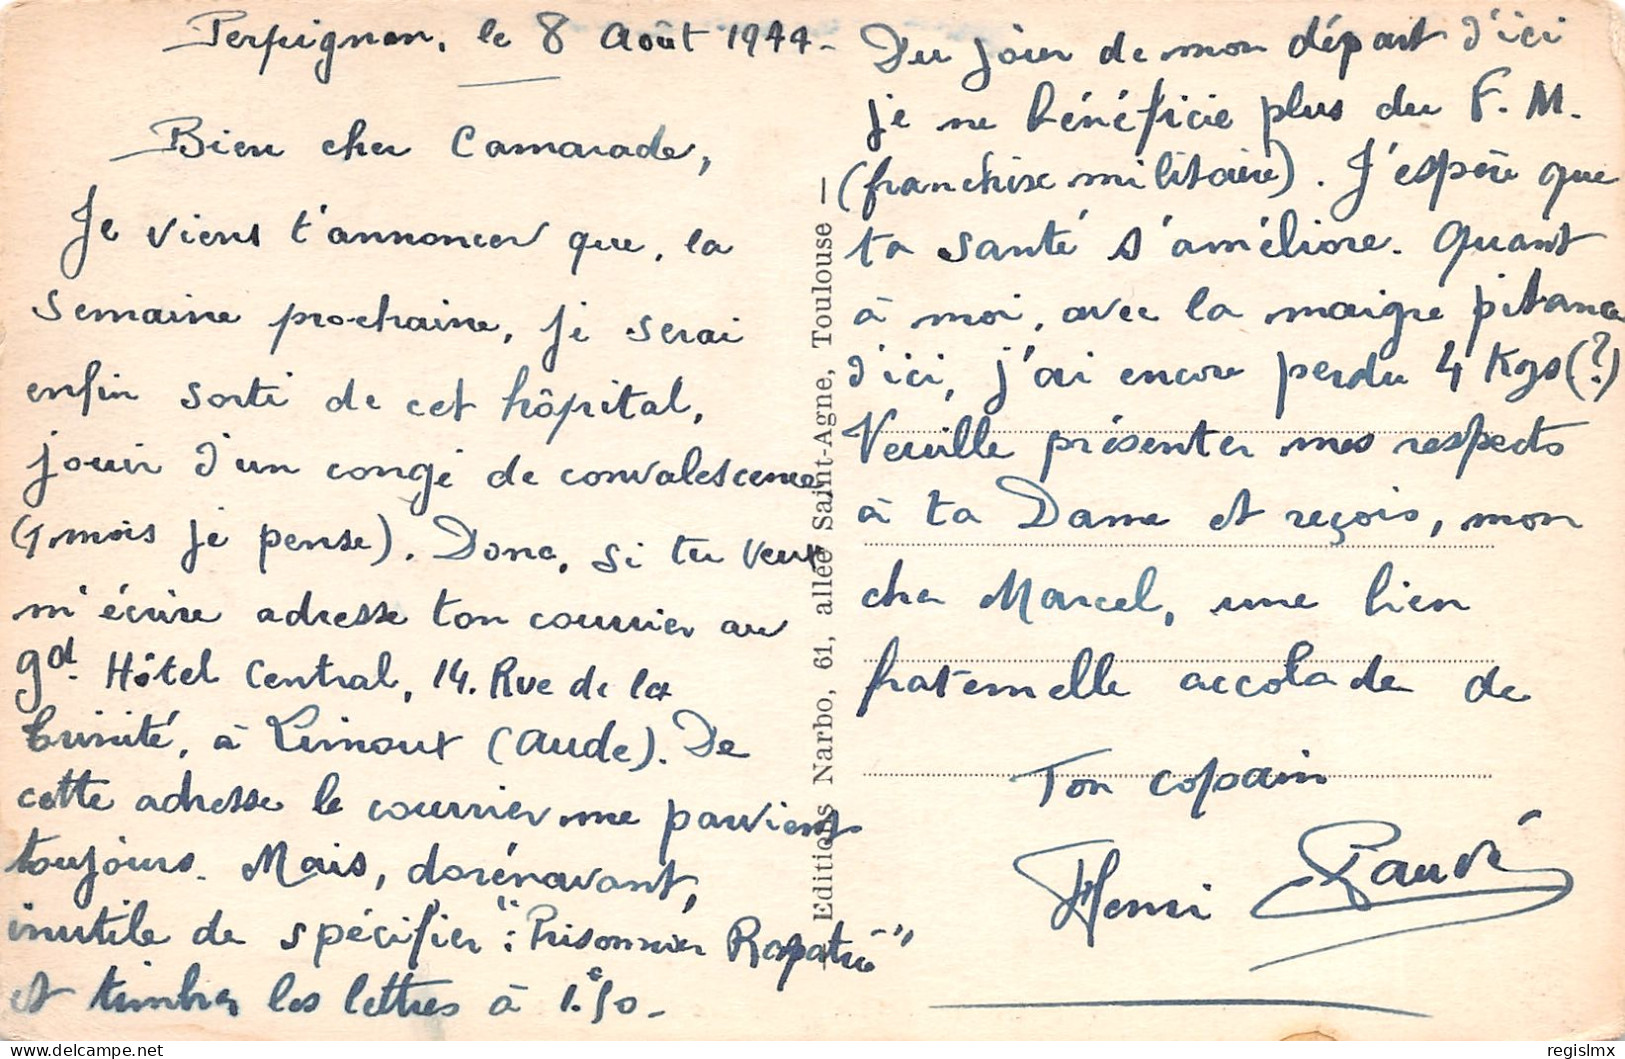 Perpignan, le 8 Août 1944 -
Bien cher Camarade,
Je viens t'annoncer que, la
semaine prochaine, je serai
enfin sorti de cet hôpital,
jouir d'un congé de convalescence
(1 mois je pense). Donc, si tu veux
m'écrire adresse ton courrier au
gd. Hôtel Central, 14. Rue de la
Trinité, à Limoux (Aude). De
cette adresse le courrier me parvient
toujours. Mais, dorénavant,
inutile de spécifier : "Prisonnier Rapatrié"
et timbrer les lettres à 1.50 -
Editions Narbo, 61, allée Saint-Agne, Toulouse —
Du jour de mon départ d'ici
je ne bénéficie plus du F. M.
(franchise militaire). J'espère que
ta santé s'améliore. Quant
à moi, avec la maigre pitance
d'ici, j'ai encore perdu 4 Kgs (?)
Veuille présenter mes respects
à ta Dame et reçois, mon
cher Marcel, une bien
fraternelle accolade de
Ton copain
Henri
regislmx